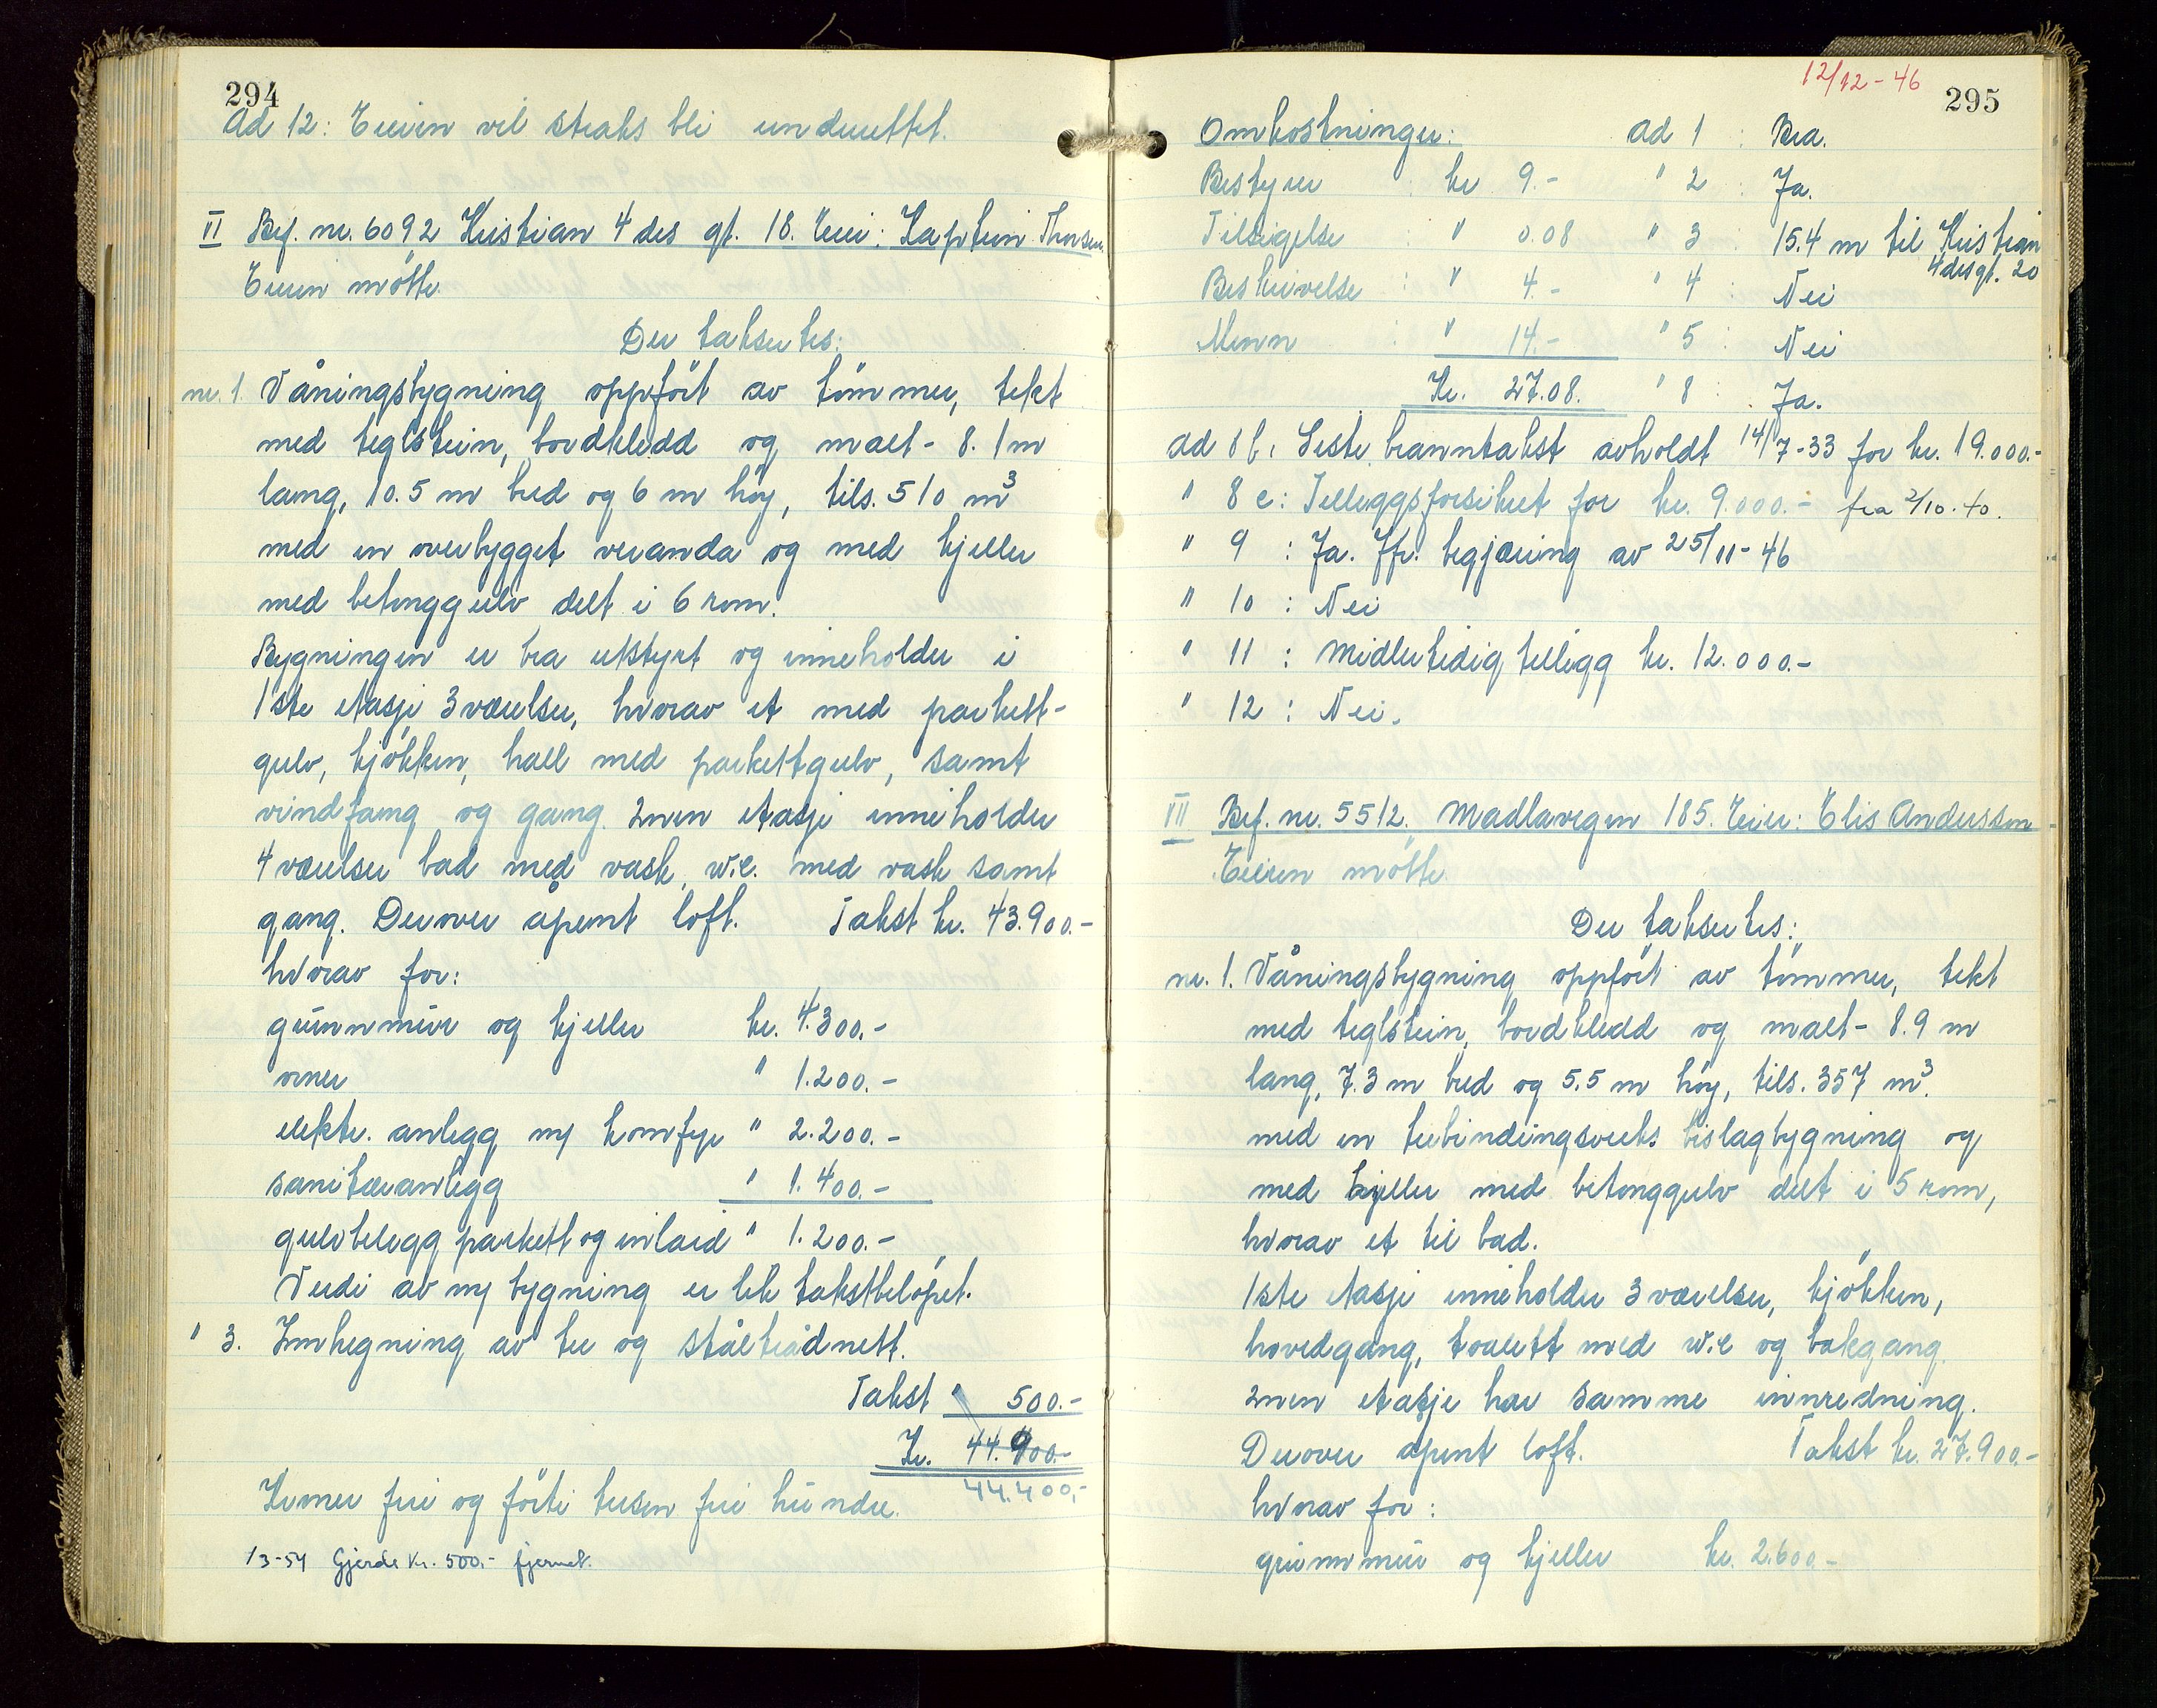 294
Ad 12: Eieren vil straks bli underrettet.
VI Brf. nr. 6092 Kristian 4 des gt. 18. Eier: Kaptein Thorsen
Eieren møtte
Der takseertes:
nr. 1. Våningsbygning oppfört av tömmer, tekt
med teglstein, bordkledd og malt - 8.1 m
lang, 10.5 m bred og 6 m høy, tils. 510 m³
med en overbygget veranda og med kjeller
med betonggulv delt i 6 rom.
Bygningen er bra utstyrt og inneholder i
1ste etasje 3 værelser, hvorav et med parkett-
gulv, kjökken, hall med parkettgulv, samt
vindfang og gang. 2nen etasje inneholder
4 værelser bad med vask, w.c. med vask samt
gang. Derover åpent loft. Takst kr. 43.900.-
hvorav for:
grunnmur og kjeller kr. 4.300.-
ovner " 1.200.-
elektr. anlegg m/ komfyr " 2.200.-
sanitæranlegg " 1.400.-
gulvbelegg parkett og inlaid " 1.200.-
Verdi av ny bygning er lik takstbelöpet.
" 3. Innhegning av tre og ståltrådnett.
Takst " 500.-
Kr. 44.900.-
44.400,-
Kroner fire og förti tusen fire hundre.
1/3-54 Gjerde kr. 500.- fjernet.
12/12-46
295
Omkostninger: ad 1 : Bra.
Bestyrer : kr 9.- " 2 : Ja.
Tilsigelse " 0.08 " 3 : 15.4 m til Kristian
4 des gt. 20
Beskrivelse : " 4.- " 4 : Nei
Menn : " 14.- " 5 : Nei
Kr. 27.08. " 8 : Ja.
ad 8 b: Siste branntakst avholdt 14/7-33 for kr. 19.000.-
" 8 c: Tilleggsforsikret for kr. 9.000.- fra 2/10.40.
" 9 : Ja. Jfr. begjæring av 25/11-46
" 10 : Nei
" 11 : Midlertidig tillegg kr. 12.000.-
" 12 : Nei.
VII Brf. nr. 5512. Madlavegen 185. Eier: Elis Anderssen
Eieren møtte
Der taksertes:
nr. 1. Våningsbygning oppfört av tömmer, tekt
med teglstein, bordkledd og malt - 8.9 m
lang, 7.3 m bred og 5.5 m høy, tils. 357 m³.
med en trebindingsverks bislagbygning og
med kjeller med betonggulv delt i 5 rom,
hvorav et til bad.
1ste etasje inneholder 3 værelser, kjökken,
hovedgang, toalett med w.c og bakgang.
2nen etasje har samme innredning.
Derover åpent loft. Takst kr. 27.900.-
hvorav for:
grunnmur og kjeller kr. 2.600.-